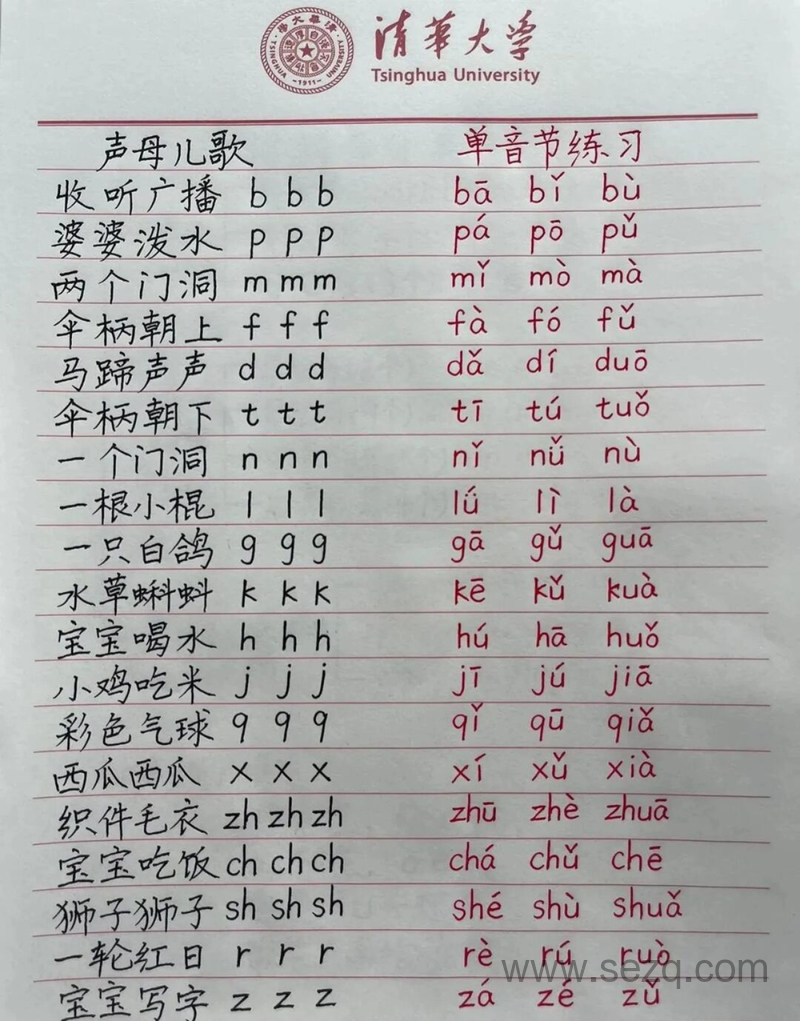 清华大学
Tsinghua University
TSINGHUA UNIVERSITY
·1911·
声母儿歌 单音节练习
收听广播 b b b bā bǐ bù
婆婆泼水 p p p pá pō pǔ
两个门洞 m m m mǐ mò mà
伞柄朝上 f f f fà fó fǔ
马蹄声声 d d d dǎ dí duō
伞柄朝下 t t t tī tú tuǒ
一个门洞 n n n nǐ nǚ nù
一根小棍 l l l lǘ lì là
一只白鸽 g g g gā gǔ guā
水草蝌蚪 k k k kē kǔ kuà
宝宝喝水 h h h hú hā huǒ
小鸡吃米 j j j jī jú jiā
彩色气球 q q q qǐ qū qiǎ
西瓜西瓜 x x x xí xǔ xià
织件毛衣 zh zh zh zhū zhè zhuā
宝宝吃饭 ch ch ch chá chǔ chē
狮子狮子 sh sh sh shé shù shuǎ
一轮红日 r r r rè rú ruò
宝宝写字 z z z zá zé zǔ
www.sezq.com